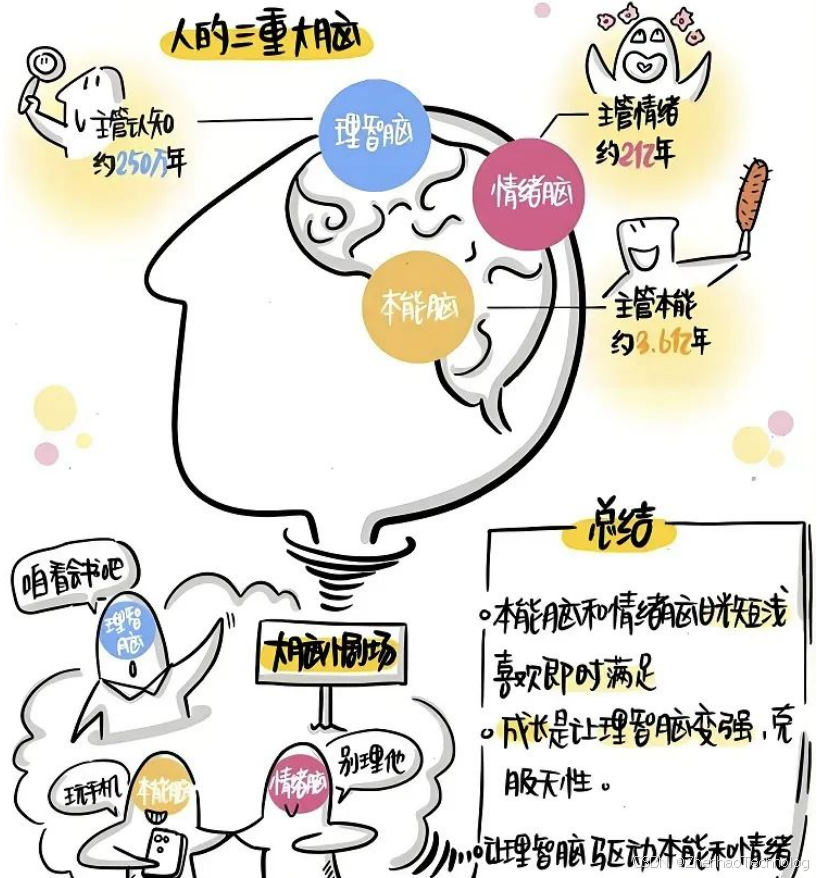 人的三重大脑
主管认知
约250万年
理智脑
主管情绪
约2亿年
情绪脑
本能脑
主管本能
约3.6亿年
咱看会书吧
理智
脑
大脑小剧场
玩手机
本能脑
情绪脑
别理他
总结
本能脑和情绪脑目光短浅
喜欢即时满足
成长是让理智脑变强,克
服天性。
让理智脑驱动本能和情绪